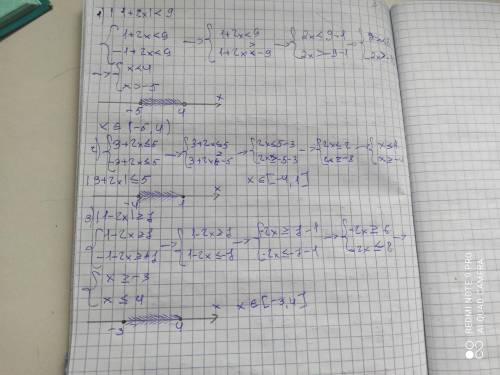 1) |1+2x|<9
{1+2x<9 → {1+2x<9 → {2x<9-1
{-1+2x<9 {1+2x>-9 {2x>-9-1
→ {x<4
{x>-5
-5 4 x
x ∈ (-5, 4)
2) {3+2x≤5 → {3+2x≤5 → {2x≤5-3 → {2x≤2 → {x≤1
{3+2x≥-5 {2x≥-5-3 {2x≥-8
|3+2x|≤5
-4 1
x∈[-4,1]
3) |1-2x|≥7
{1-2x≥7 → {1-2x≥7 → {-2x≥7-1 → {-2x≥6 →
{1-2x≤-7 {-2x≤-7-1 {-2x≤8
{x≥-3
{x≤4
-3 4 x
x∈[-3,4]
REDMI NOTE 8 PRO
AI QUAD CAMERA